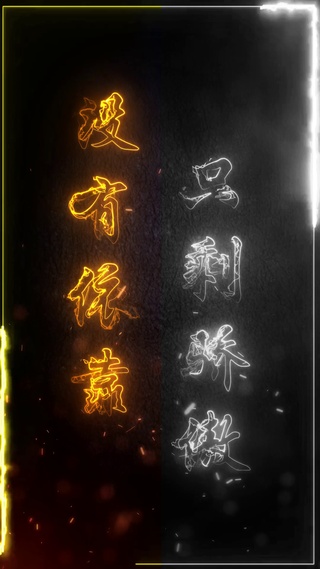 没有依靠
只剩骄傲